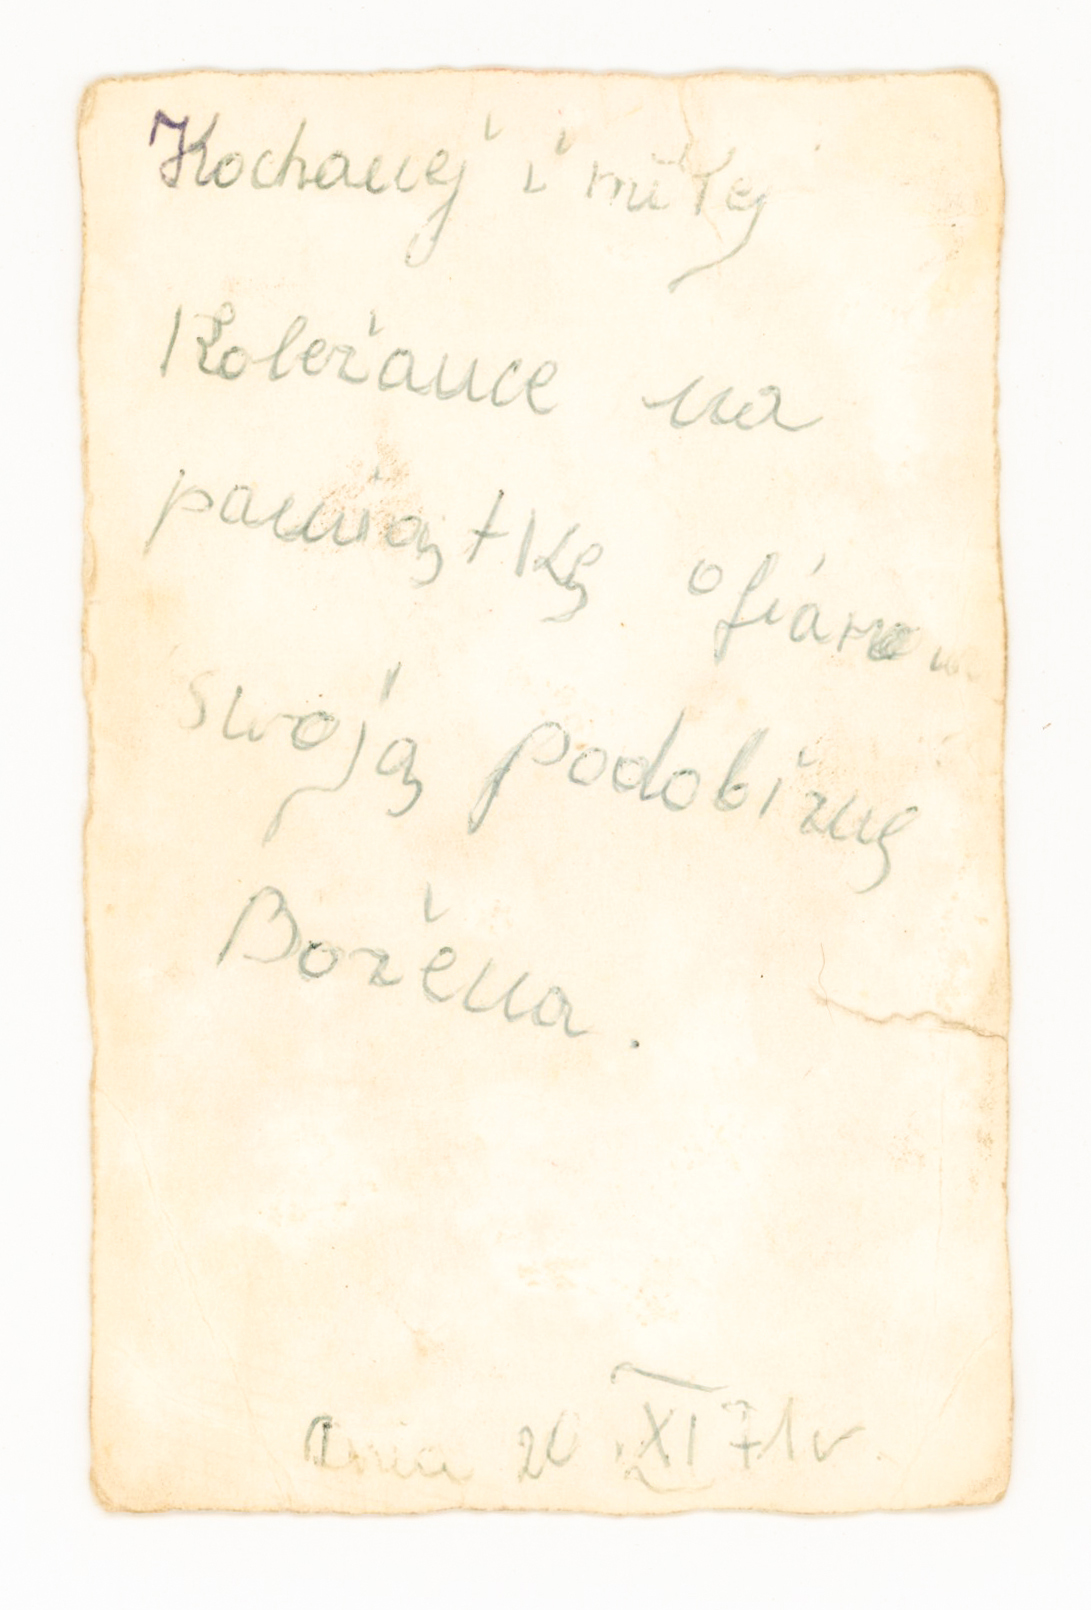 Kochanej i miłej
Koleżance na
pamiątkę
swoją podobiznę
Bożena.
Dnia 20 XI 71 r